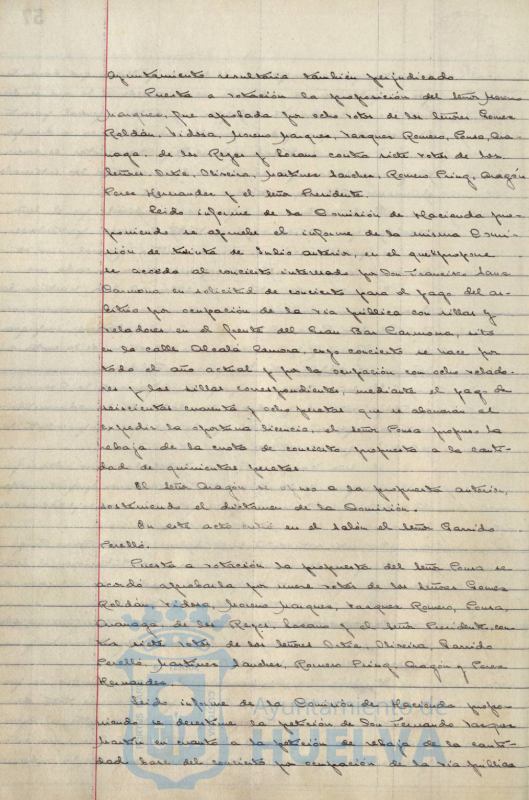 Ayuntamiento resultaria también perjudicado
Puesta a votación la proposición del Señor Moreno
Marquez, fue aprobada por ocho votos de los Señores Gomez
Roldán, Vidosa, Moreno Marquez, Vazquez Romero, Ponsa,
de los Reyes y Lozano contra siete votos de los
Señores Ortiz, Oliveira, Martinez Sanchez, Romero Prieg, Aragón
Perez Hernandez y el Señor Presidente.
Leido informe de la Comisión de Hacienda pro-
poniendo se apruebe el informe de la misma Comi-
sión, de treinta de Julio anterior, en el que propone
se acceda al concierto interesado por Don Francisco
Carmona en solicitud de concierto para el pago del ar-
bitrio por ocupación de la via publica con sillas y
veladores en el frente del Gran Bar Carmona, sito
en la calle Alcalá Zamora, cuyo concierto se hace por
todo el año actual y por la ocupación con ocho velado-
res y las sillas correspondientes, mediante el pago de
seiscientas cuarenta y ocho pesetas que se abonarán al
expedir la oportuna licencia, el Señor Ponsa propuso la
rebaja de la cuota de concierto propuesta a la canti-
dad de quinientas pesetas.
El Señor Aragón se opuso a la propuesta anterior,
sosteniendo el dictamen de la Comisión.
En este acto entró en el salón el Señor Garrido
Perelló.
Puesta a votación la propuesta del Señor Ponsa se
acordó aprobarla por nueve votos de los Señores Gomez
Roldán Vidosa, Moreno Marquez, Vazquez Romero, Ponsa,
de los Reyes, Lozano y el Señor Presidente, con-
tra siete votos de los Señores Ortiz, Oliveira, Garrido
Perelló Martinez Sanchez, Romero Prieg, Aragón y Perez
Hernandez.
Leido informe de la Comisión de Hacienda propo-
niendo se desestime la petición de Don Fernando Vazquez
Martín en cuanto a la petición de rebaja de la canti-
dad base del concierto por ocupación de la via publica
Ayuntamiento de
HUELVA